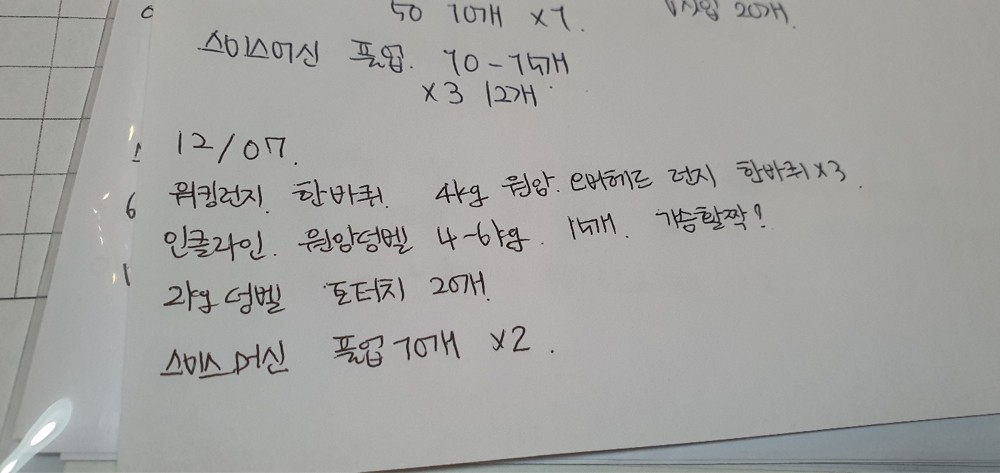 50 10개 x7. 20개.
스미스머신 풀업. 10-15개
x3 12개
12/07.
워킹런지. 한바퀴. 4kg 원암. 오버헤드 런지 한바퀴x3.
인클라인. 원암덩벨 4~6kg. 15개. 가슴활짝!
2kg 덩벨 토터치 20개.
스미스머신 풀업 10개 x2.